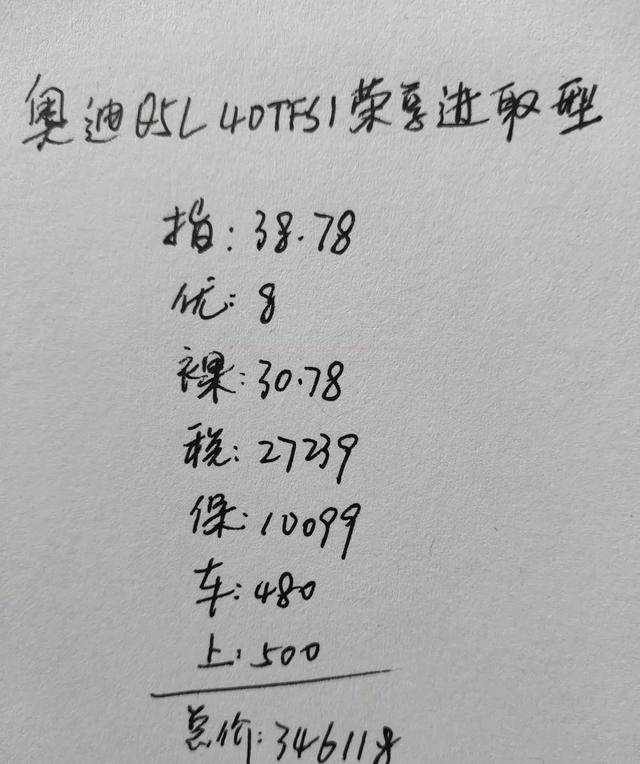 奥迪Q5L 40TFSI荣享进取型
指:38.78
优:8
裸:30.78
税:27239
保:10099
车:480
上:500
总价:346118